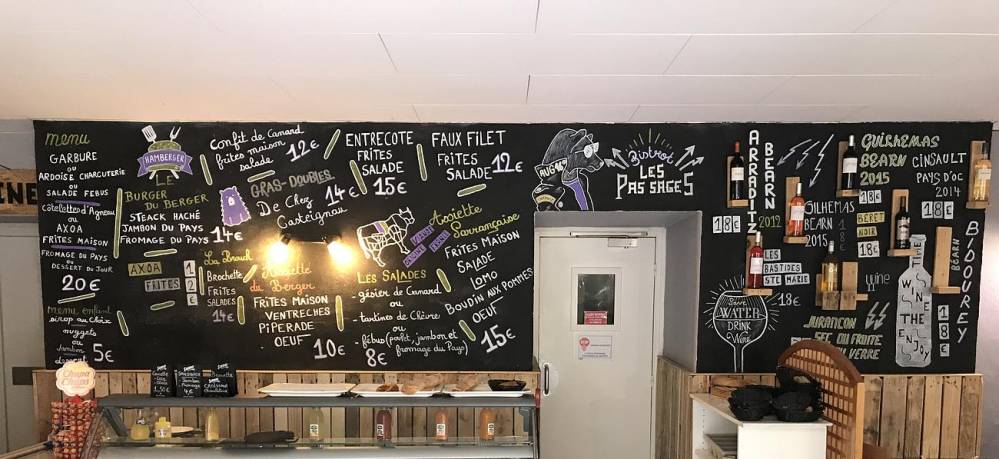 menu
GARBURE
OU
ARDOISE CHARCUTERIE
OU
SALADE FEBUS
Côtelettes d'Agneau
ou
AXOA
FRITES MAISON
FROMAGE DU PAYS
OU
DESSERT DU JOUR
20€
menu enfant
sirop au choix
nuggets
ou
Jambon
5€
HAMBERGER
LE
BURGER DU BERGER
STEACK HACHÉ
JAMBON DU PAYS
FROMAGE DU PAYS 14€
AXOA
FRITES
12€
Confit de Canard
frites maison
salade
12€
GRAS-DOUBLES
De Chez
Casteignau
14€
La Broch
Brochette
FRITES
SALADES
14€
Assiette
du Berger
FRITES MAISON
VENTRECHES
PIPERADE
OEUF
10€
ENTRECOTE
FRITES
SALADE
15€
FAUX FILET
FRITES
SALADE
12€
LES SALADES
- gésier de Canard
ou
- tartines de Chèvre
ou
- fébus (poulet, jambon et
fromage du Pays)
8€
Assiette
Sarrançaise
FRITES MAISON
SALADE
LOMO
BOUDIN AUX POMMES
OEUF
15€
Bistrot
LES
PASSAGES
ARRADITZ
BEARN
2012
18€
GUILHEMAS
BEARN
2015
CINSAULT
PAYS D'OC
2014
18€
18€
BERET
NOIR
18€
BEARN
2015
LES
BASTIDES
STE MARIE
18€
Wine
Save
WATER
DRINK
Wine
JURANÇON
SEC OU FRUITÉ
EN VERRE
WINE
THE
ENJOY
BIDOUREY
BEARN
18€
Chupa
Chups
SANDWICH
JAMBON